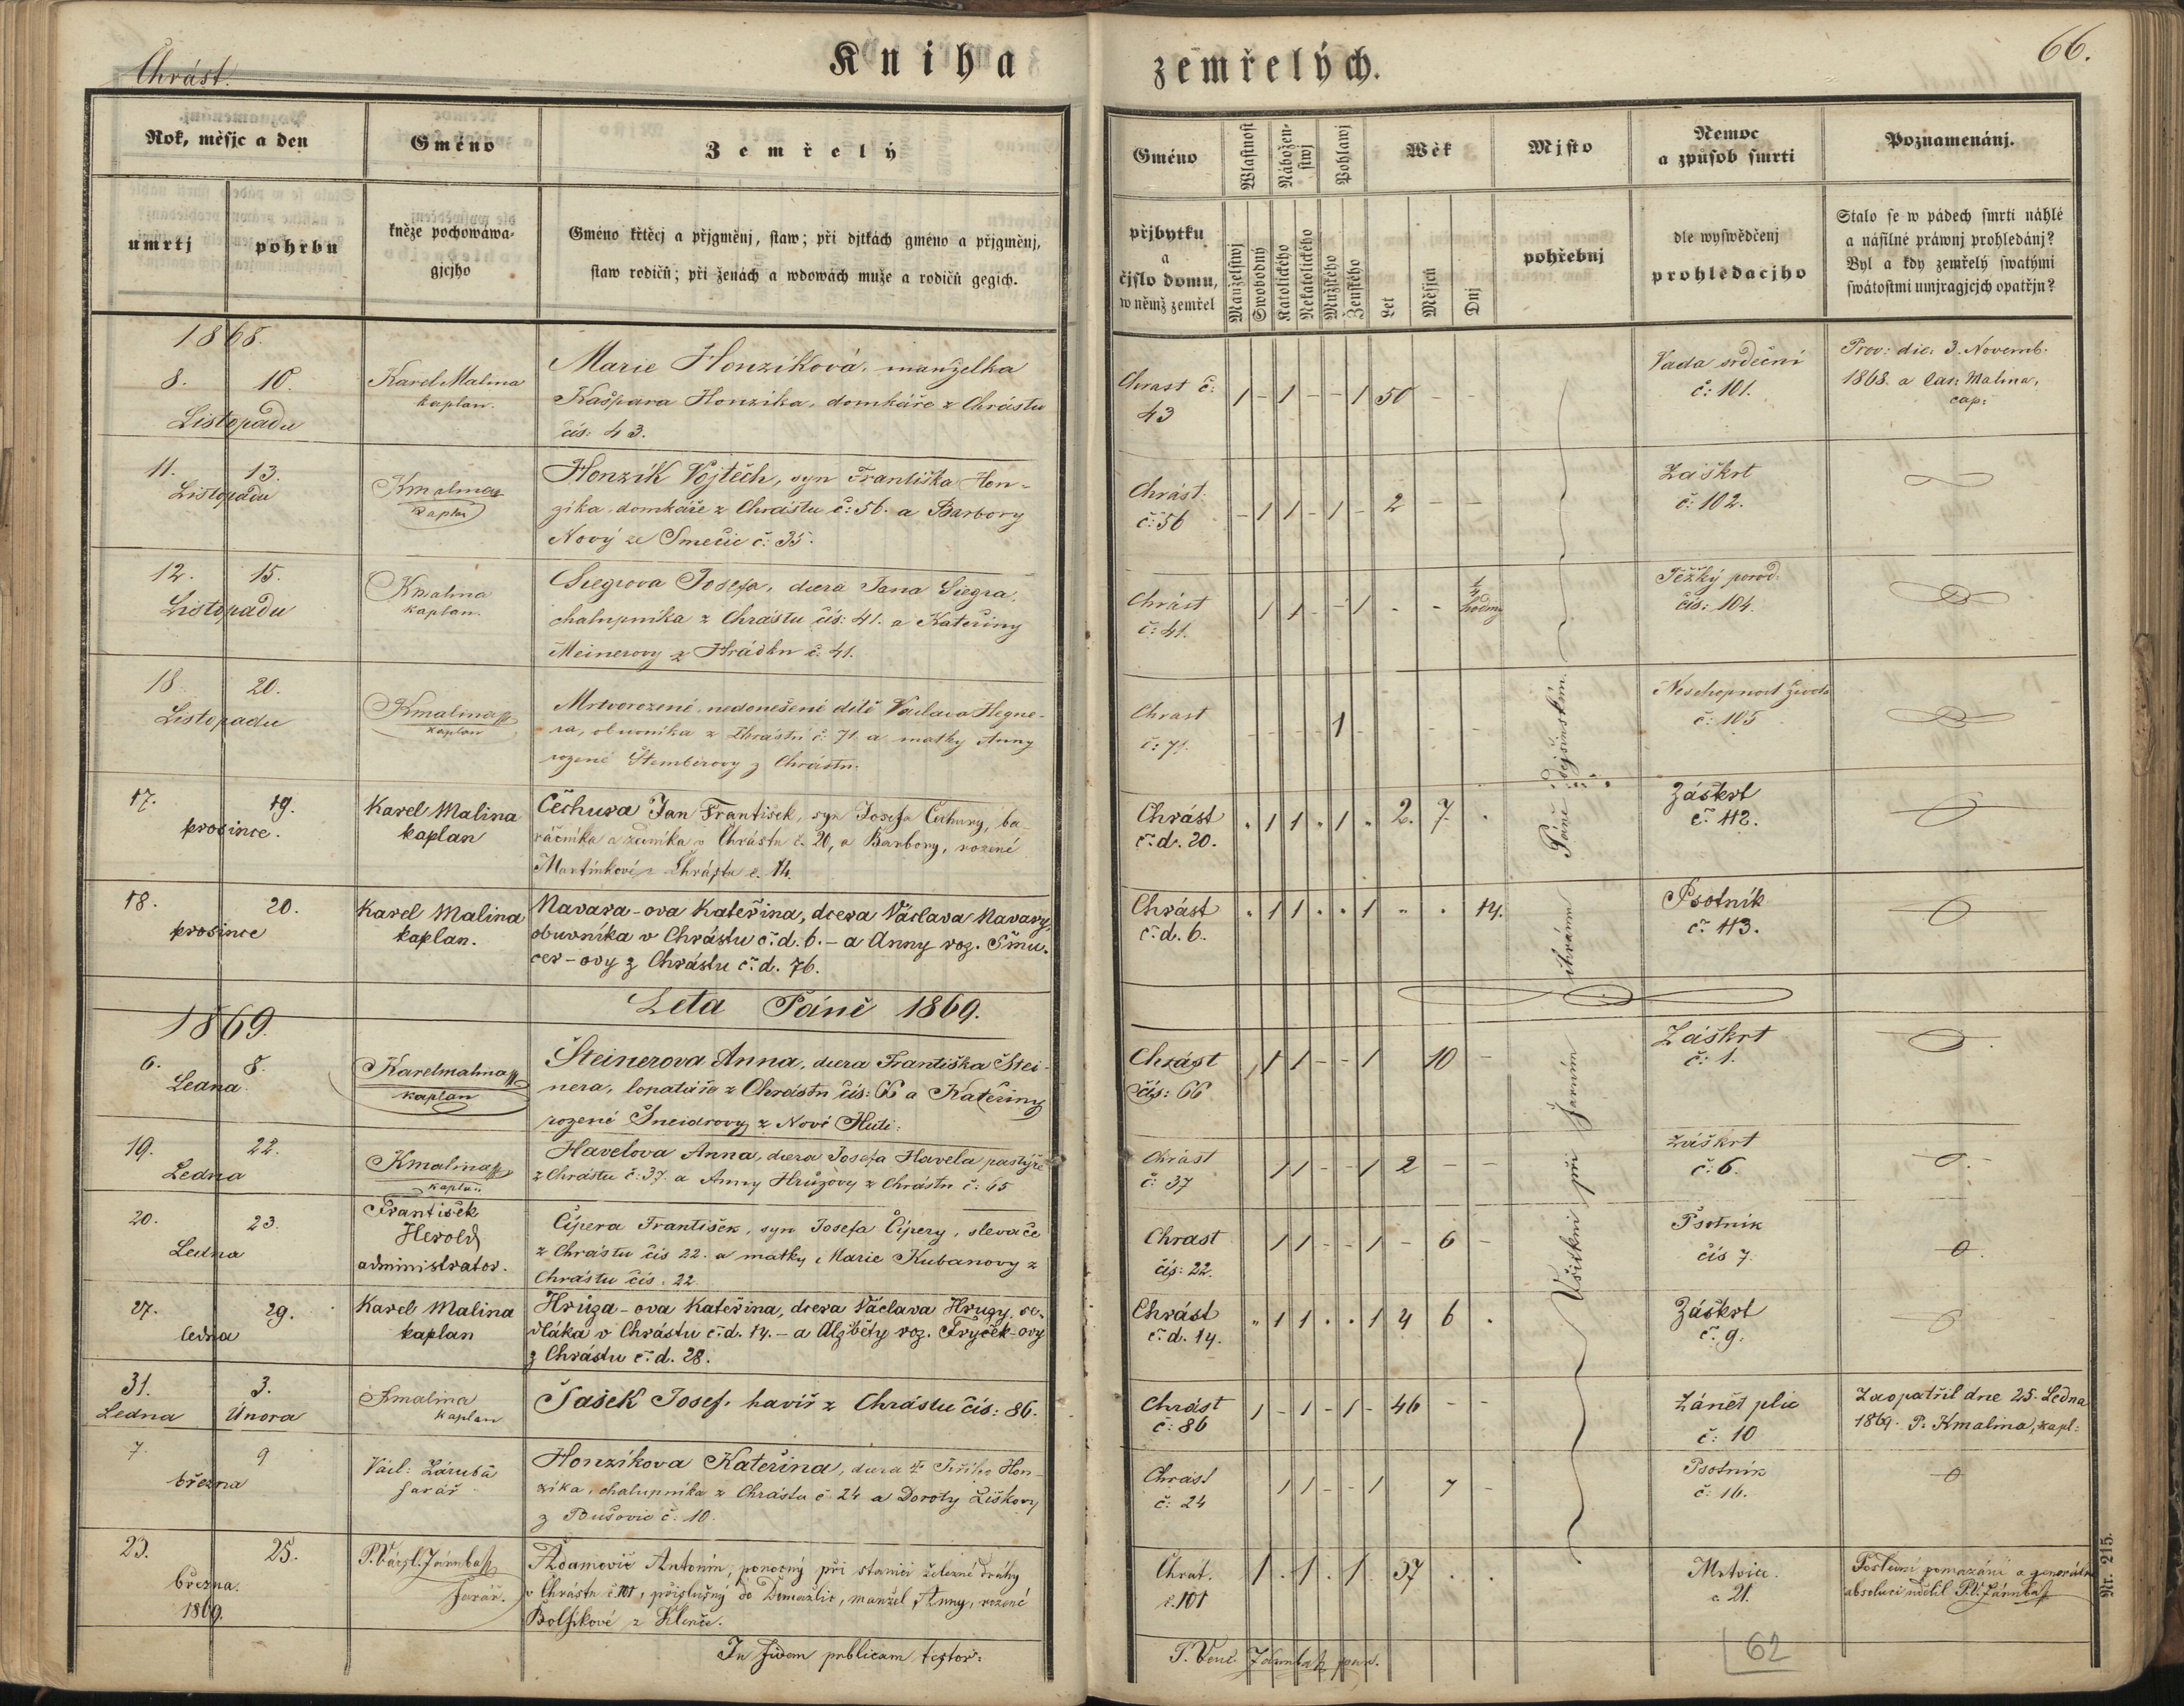 Chrást.
Kniha zemřelých.
66.
Rok, měsjc a den
Gméno
Zemřelý
Gméno
Wlastnost
Nábožen-
stwj
Pohlawj
Wěk
Mjsto
Nemoc
a způsob smrti
Poznamenánj.
umrtj
pohrbu
kněze pochowáwa-
gjcjho
Gméno křtěcj a přjgměnj, staw; při djtkách gméno a přjgměnj,
staw rodičů; při ženách a wdowách muže a rodičů gegich.
přjbytku
a
čjslo domu,
w němž zemřel
Manželstwj
Swobodný
Katolického
Nekatolického
Mužského
Ženského
Let
Měsjců
Dnj
pohřebnj
dle wyswědčenj
prohledacjho
Stalo se w pádech smrti náhlé
a násilné práwnj prohledánj?
Byl a kdy zemřelý swatými
swátostmi umjragjcjch opatřjn?
1868.
8. 10.
Listopadu
Karel Malina
kaplan.
Marie Honzíková, manželka
Kašpara Honzika, domkáře z Chrástu
čís: 43.
Chrast č:
43
1 - 1 - - 1 50 - -
Vada srdeční
č: 101.
Prov: die: 3. Novemb.
1868. a Car: Malina,
cap:
11. 13.
Listopadu
Kmalina
kaplan
Honzík Vojtěch, syn Františka Hon-
zíka, domkáře z Chrástu č: 56. a Barbory
Nový ze Smečic č: 35.
Chrást.
č: 56
- 1 1 - 1 - 2 - -
Záškrt
č: 102.
12. 15.
Listopadu
Kmalina
kaplan.
Siegrova Josefa, dcera Jana Siegra,
chalupníka z Chrástu čís: 41. a Kateřiny
Meinerovy z Hrádku č. 41.
Chrást
č: 41.
1 1 - - 1 - - 1/4 hodiny
Těžký porod.
čís: 104.
18. 20.
Listopadu
Kmalina
kaplan
Mrtvorozené, nedonešené dítě Václava Hegne-
ra, obuvníka z Chrástu č: 71. a matky Anny
rozené Štemberovy z Chrástu.
Chrast
č: 71.
- - - - 1 - - - -
Neschopnost života
č: 105
17. 19.
prosince.
Karel Malina
kaplan
Čechura Jan František, syn Josefa Čechury, ba-
ráčníka a zedníka v Chrástu č. 20, a Barbory, rozené
Martínkové z Chrástu č. 14.
Chrást
č. d. 20.
. 1 1 . 1 . 2. 7. .
Záškrt
č. 112.
18. 20.
prosince
Karel Malina
kaplan.
Navara-ova Kateřina, dcera Václava Navary,
obuvníka v Chrástu č. d. 6. - a Anny roz. Šmu-
cer-ovy z Chrástu č. d. 76.
Chrást
č. d. 6.
. 1 1 . . 1 . . 14.
Psotník
č. 113.
Leta Páně 1869.
1869.
6. 8.
Ledna
Karel malina
kaplan
Šteinerova Anna, dcera Františka Štei-
nera, lopatáře z Chrástu čís: 66 a Kateřiny
rozené Šneidrovy z Nové Huti:
Chrást
čís: 66
1 1 - - 1 10 -
Záškrt
č: 1.
19. 22.
Ledna
Kmalina
kaplan
Havelova Anna, dcera Josefa Havela pastýře
z Chrástu č: 37. a Anny Hrůzovy z Chrástu č: 65
Chrást
č: 37
1 1 - - 1 2 - -
Záškrt
č: 6.
20. 23.
Ledna
František
Herold
administrator.
Čípera František, syn Josefa Čípery, slevače
z Chrástu čís 22. a matky Marie Kubanovy z
Chrástu čís. 22.
Chrast
čís: 22.
1 1 - - 1 - 6 -
Psotník
čís 7.
27. 29.
ledna
Karel Malina
kaplan
Hrůza-ova Kateřina, dcera Václava Hruzy, se-
dláka v Chrástu č. d. 14. - a Alžběty roz. Fryček-ovy
z Chrástu č. d. 28.
Chrást
č. d. 14.
. 1 1 . . 1 4 6 .
Záškrt
č. 9.
31. 3.
Ledna Února
Kmalina
kaplan
Šašek Josef, havíř z Chrástu čís: 86.
Chrást
č: 86
1 - 1 - 1 - 46 - -
Zánět plic
č: 10
Zaopatřil dne 25. Ledna
1869. P. Kmalina, kapl:
7. 9
března
Václ: Záruba
farář
Honzíkova Kateřina, dcera Jiřího Hon-
zíka, chalupníka z Chrástu č 24 a Doroty Liškovy
z Bušovic č. 10.
Chrást
č: 24
1 1 - - 1 7 -
Psotník
č: 16.
23. 25.
března.
1869.
P. Vácsl. Záruba
farář.
Adamovič Antonín, ponocný při stanici železné dráhy
v Chrástu č. 101, příslušný do Domažlic, manžel Anny, rozené
z Klenče.
Chrást.
č. 101
1 . 1 . 1 . 37 . .
Mrtvice.
č. 21.
Poslední pomazání a generální
absoluci udělil P. V. Záruba
Všickni při farním chrámu Páně dýšinském.
In fidem publicam testor:
P. Venc. Záruba
62
Nr. 215.